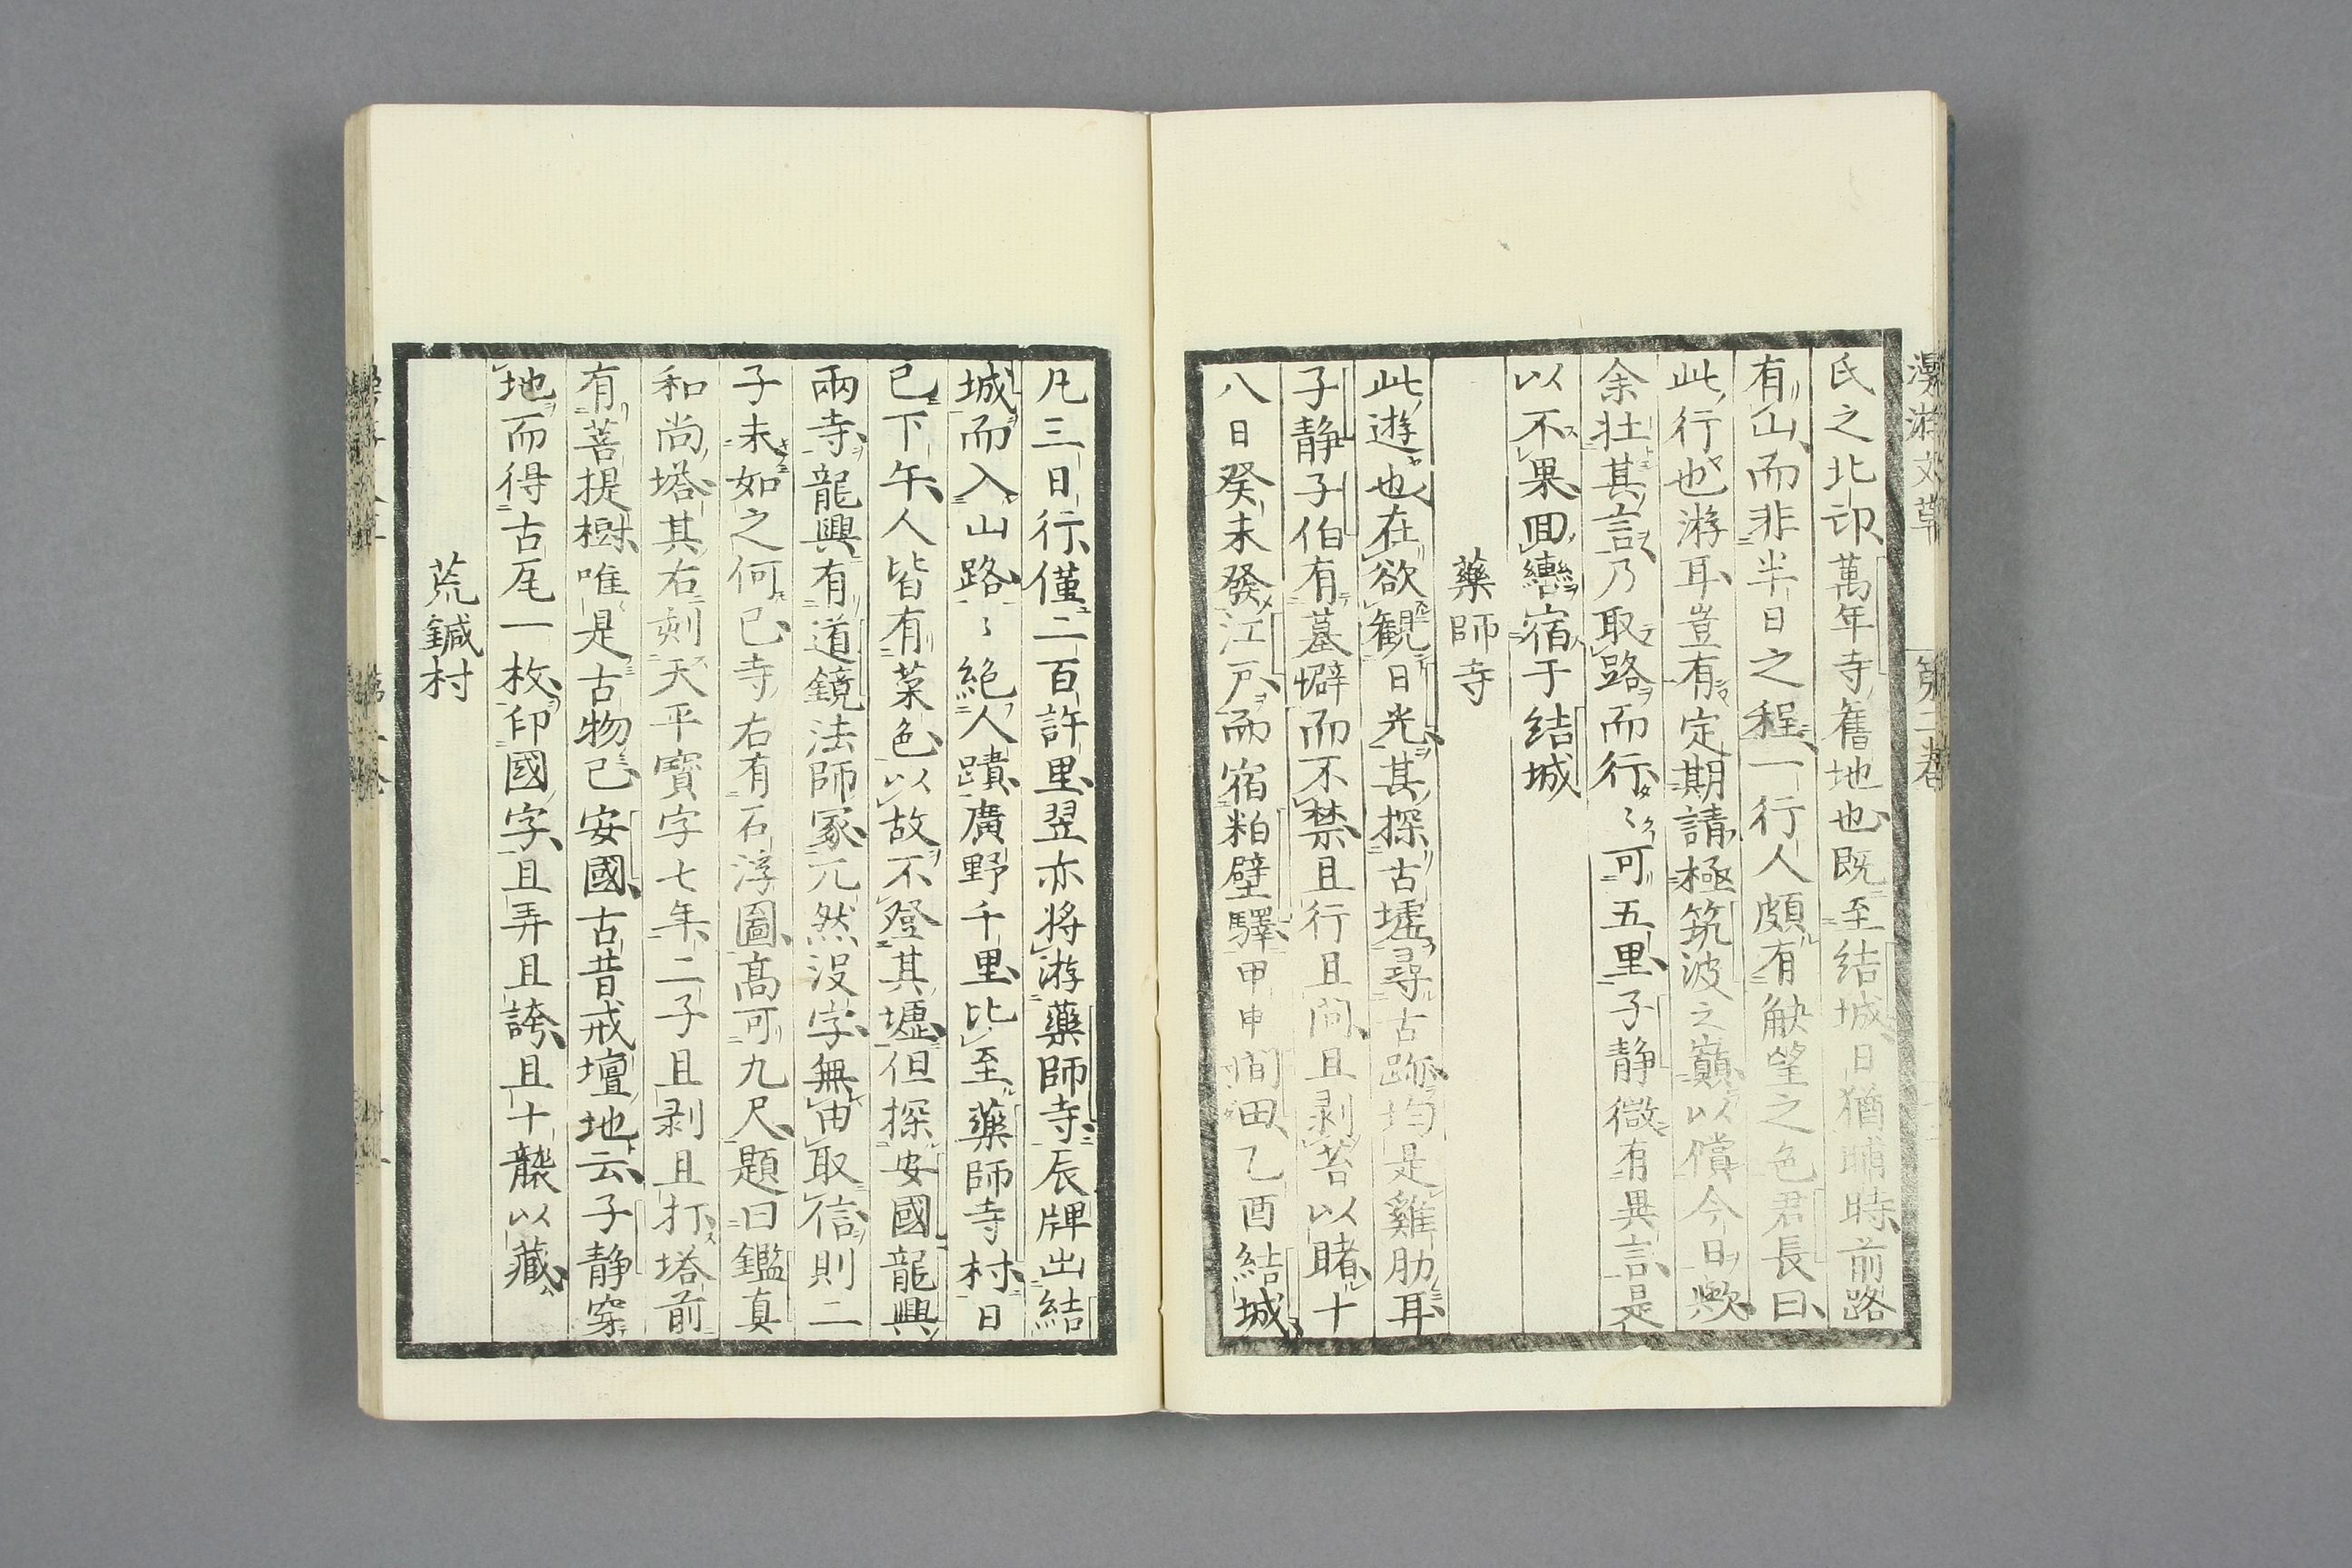 漫游文草
第二卷
氏之北卭萬年寺舊地也既至結城日猶晡時前路
有山而非半日之程一行人頗有觖望之色君長曰
此行也游耳豈有定期請極筑波之巔以償今日歟
余壮其言乃取路而行々可五里子静微有異言是
以不果囬轡宿于結城
藥師寺
此遊也在欲観日光其探古墟尋古跡均是雞肋耳
子静子伯有墓癖而不禁且行且问且剥苔以睹十
八日癸未發江戸而宿粕壁驛甲申間田乙酉結城
凡三日行僅二百許里翌亦将游藥師寺辰牌出結
城而入山路々絶人蹟廣野千里比至藥師寺村日
已下午人皆有菜色以故不登其壚但探安國龍興
兩寺龍興有道鏡法師冢兀然没字無由取信則二
子未如之何已寺右有石浮圖高可九尺題曰鑑真
和尚塔其右刻天平寶字七年二子且剥且打塔前
有菩提樹唯是古物已安國古昔戒壇地云子静穿
地而得古瓦一枚印國字且弄且誇且十襲以藏
荒鍼村